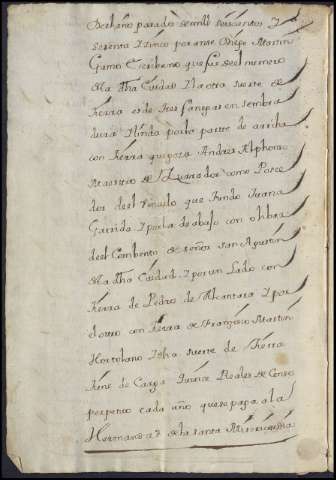 Dicho año pasado de mill seiscientos y
sesenta y sinco por ante Diego Martin
Gamo escribano que fue de el numero
de la dha ciudad y la otra suerte de
tierra es de tres fanegas en sembra
dura y linda por la parte de arriba
con tierra que posa Andres Alphon
Maestro de como Posee
dor de el Vinculo que fundo Juana
Garrida y por la de abajo con ohbra
de el Combento de señor san Agustin
de la dha Ciudad y por un Lado con
tierra de Pedro de Alcantara y por
el otro con tierra de Françisco Martin
Hortelano y dha suerte de tierra
tiene de Carga Quinze Reales de Censo
perpetuo cada año que se paga a la
Hermandad de la santa Misericordia